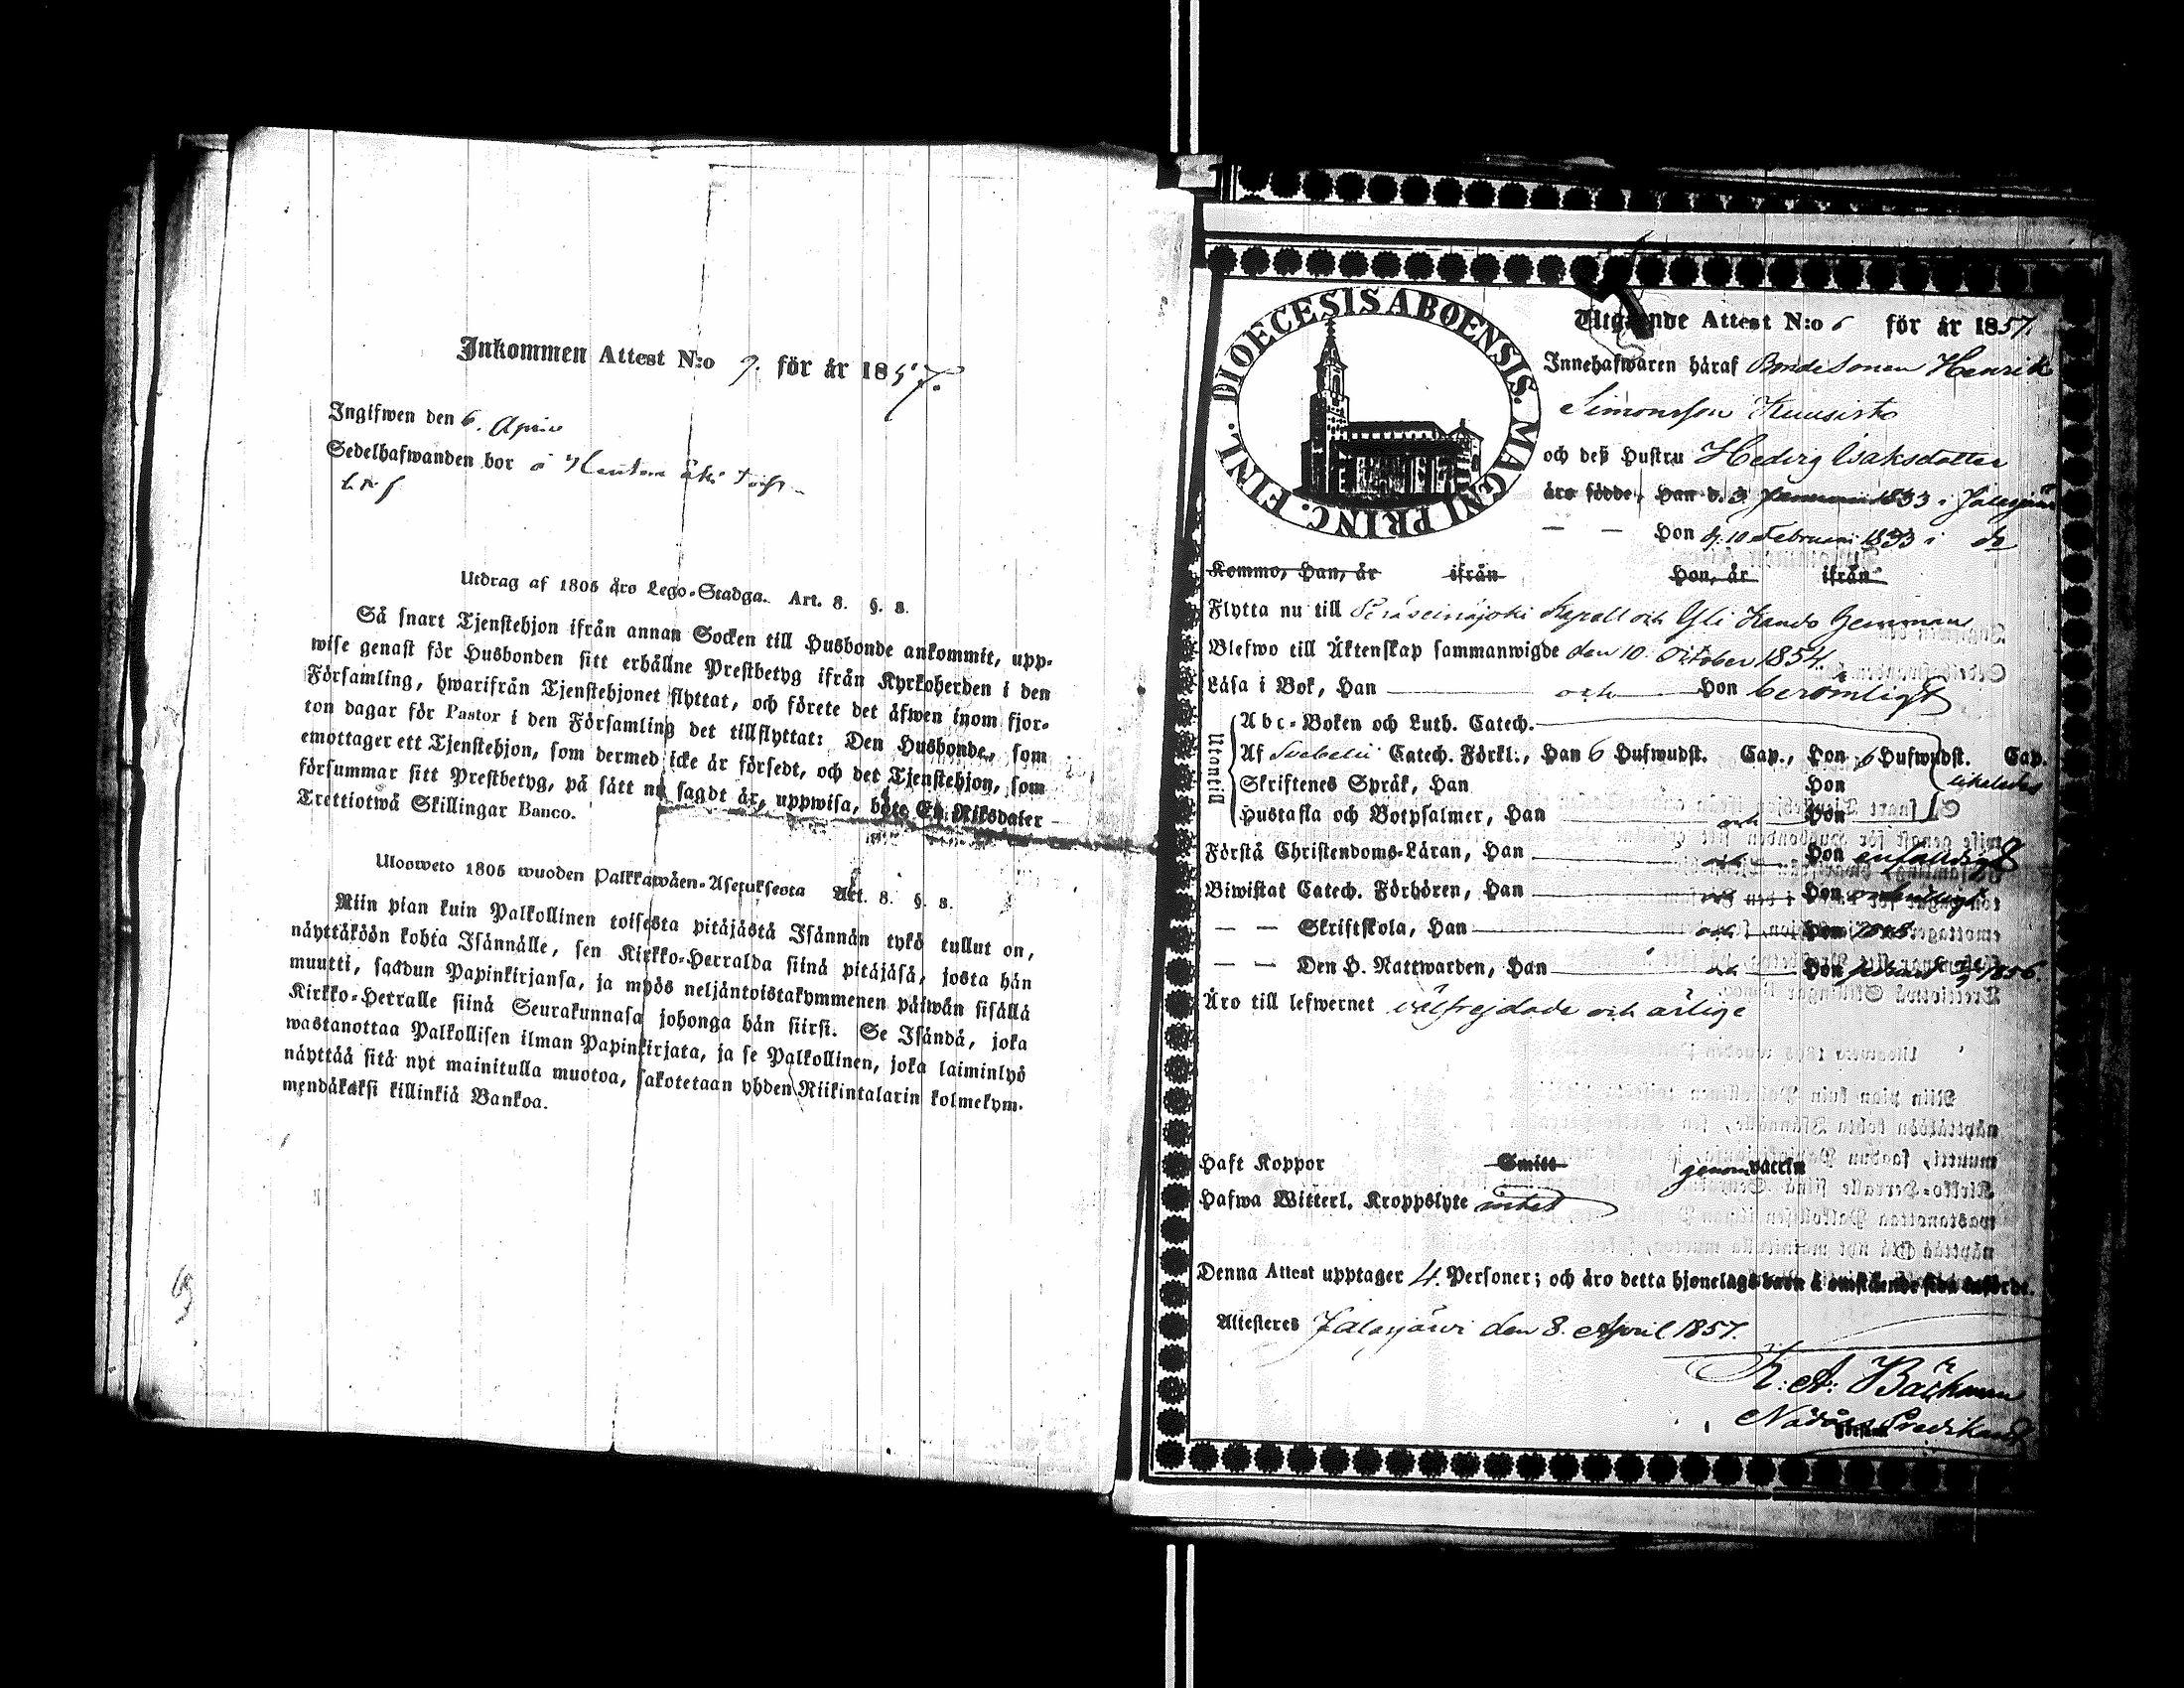 Inkommen Attest N:o 9. för år 1857.
Ingifwen den 6. April
Sedelhafwanden bor å
Utdrag af 1805 års Lego-Stadga. Art. 8. §. 8.
Så snart Tjenstehjon ifrån annan Socken till Husbonde ankommit, upp-
wise genast för Husbonden sitt erhållne Prestbetyg ifrån Kyrkoherden i den
Församling, hwarifrån Tjenstehjonet flyttat, och förete det äfwen inom fjor-
ton dagar för Pastor i den Församling det tillflyttat: Den Husbonde, som
emottager ett Tjenstehjon, som dermed icke är försedt, och det Tjenstehjon, som
försummar sitt Prestbetyg, på sätt nu sagdt är, uppwisa, böte En Riksdaler
Trettiotwå Skillingar Banco.
Ulosweto 1805 wuoden Palkkawäen-Asetuksesta Art. 8. §. 8.
Niin pian kuin Palkollinen toisesta pitäjästä Isännän tykö tullut on,
näyttäköön kohta Isännälle, sen Kirkko-Herralda siinä pitäjäsä, josta hän
muutti, saadun Papinkirjansa, ja myös neljäntoistakymmenen päiwän sisällä
Kirkko-Herralle siinä Seurakunnasa johonga hän siirsi. Se Isändä, joka
wastanottaa Palkollisen ilman Papinkirjata, ja se Palkollinen, joka laiminlyö
näyttää sitä nyt mainitulla muotoa, sakotetaan yhden Riikintalarin kolmekym-
mendäkaksi killinkiä Bankoa.
DIOECESIS ABOENSIS. MAGNI PRINC. FINL.
Utgående Attest N:o 6 för år 1857.
Innehafwaren häraf Bondesonen Henrik
Simonsson Kuusisto
och deß Hustru Hedvig Isaksdotter
äro födde, Han d. 3 Januarii 1833 i Jalasjärvi
— — Hon d. 10 Februarii 1833 i do
Kommo, Han, år ifrån Hon, år ifrån
Flytta nu till Peräseinäjoki Kapell och
Blefwo till Äktenskap sammanwigde den 10. October 1854.
Läsa i Bok, Han och Hon berömligt
Utantill
Abc-Boken och Luth. Catech.
Af Svebelii Catech. Förkl., Han 6 Hufwudst. Cap., Hon 6 Hufwudst. Cap.
Skriftenes Språk, Han Hon likaledes
Hustafla och Botpsalmer, Han och Hon
Förstå Christendoms-Läran, Han och Hon enfaldigt
Biwistat Catech. Förhören, Han och Hon ordentligt
— — Skriftskola, Han och Hon
— — Den H. Nattwarden, Han och Hon 1856.
Äro till lefwernet välfrejdade och ärlige
Haft Koppor Smitt genom vaccin
Hafwa Witterl. Kroppslyte intet
Denna Attest upptager 4. Personer; och äro detta hjonelags barn å omstående sida anförde.
Attesteres Jalasjärvi den 8. April 1857.
K. A. Bäckman
Nådårs Predikant